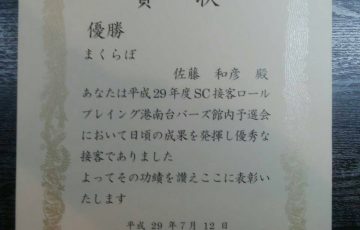 賞状
優勝
まくらぼ
佐藤 和彦 殿
あなたは平成29年度SC接客ロール
プレイング港南台バーズ館内予選会
において日頃の成果を発揮し優秀な
接客でありました
よってその功績を讃えここに表彰い
たします
平成 29 年 7 月 12 日